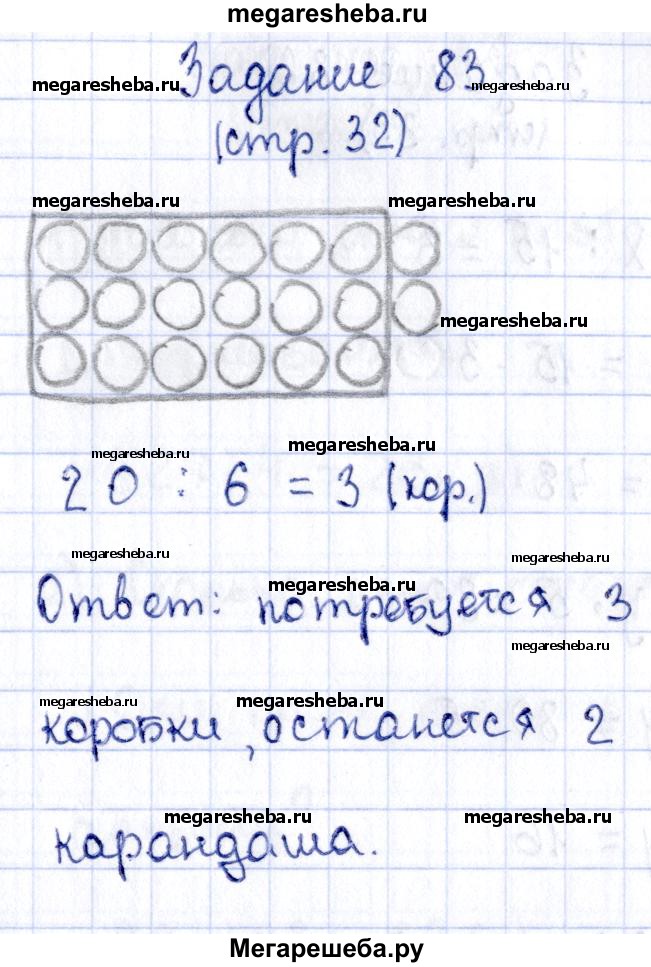 megaresheba.ru
megaresheba.ru Задание 83 megaresheba.ru
(стр. 32)
megaresheba.ru megaresheba.ru
megaresheba.ru
megaresheba.ru
megaresheba.ru
20 : 6 = 3 (кор.)
megaresheba.ru megaresheba.ru
megaresheba.ru
Ответ: потребуется 3
megaresheba.ru
megaresheba.ru megaresheba.ru
коробки, останется 2
megaresheba.ru megaresheba.ru
карандаша.
Мегарешеба.ру